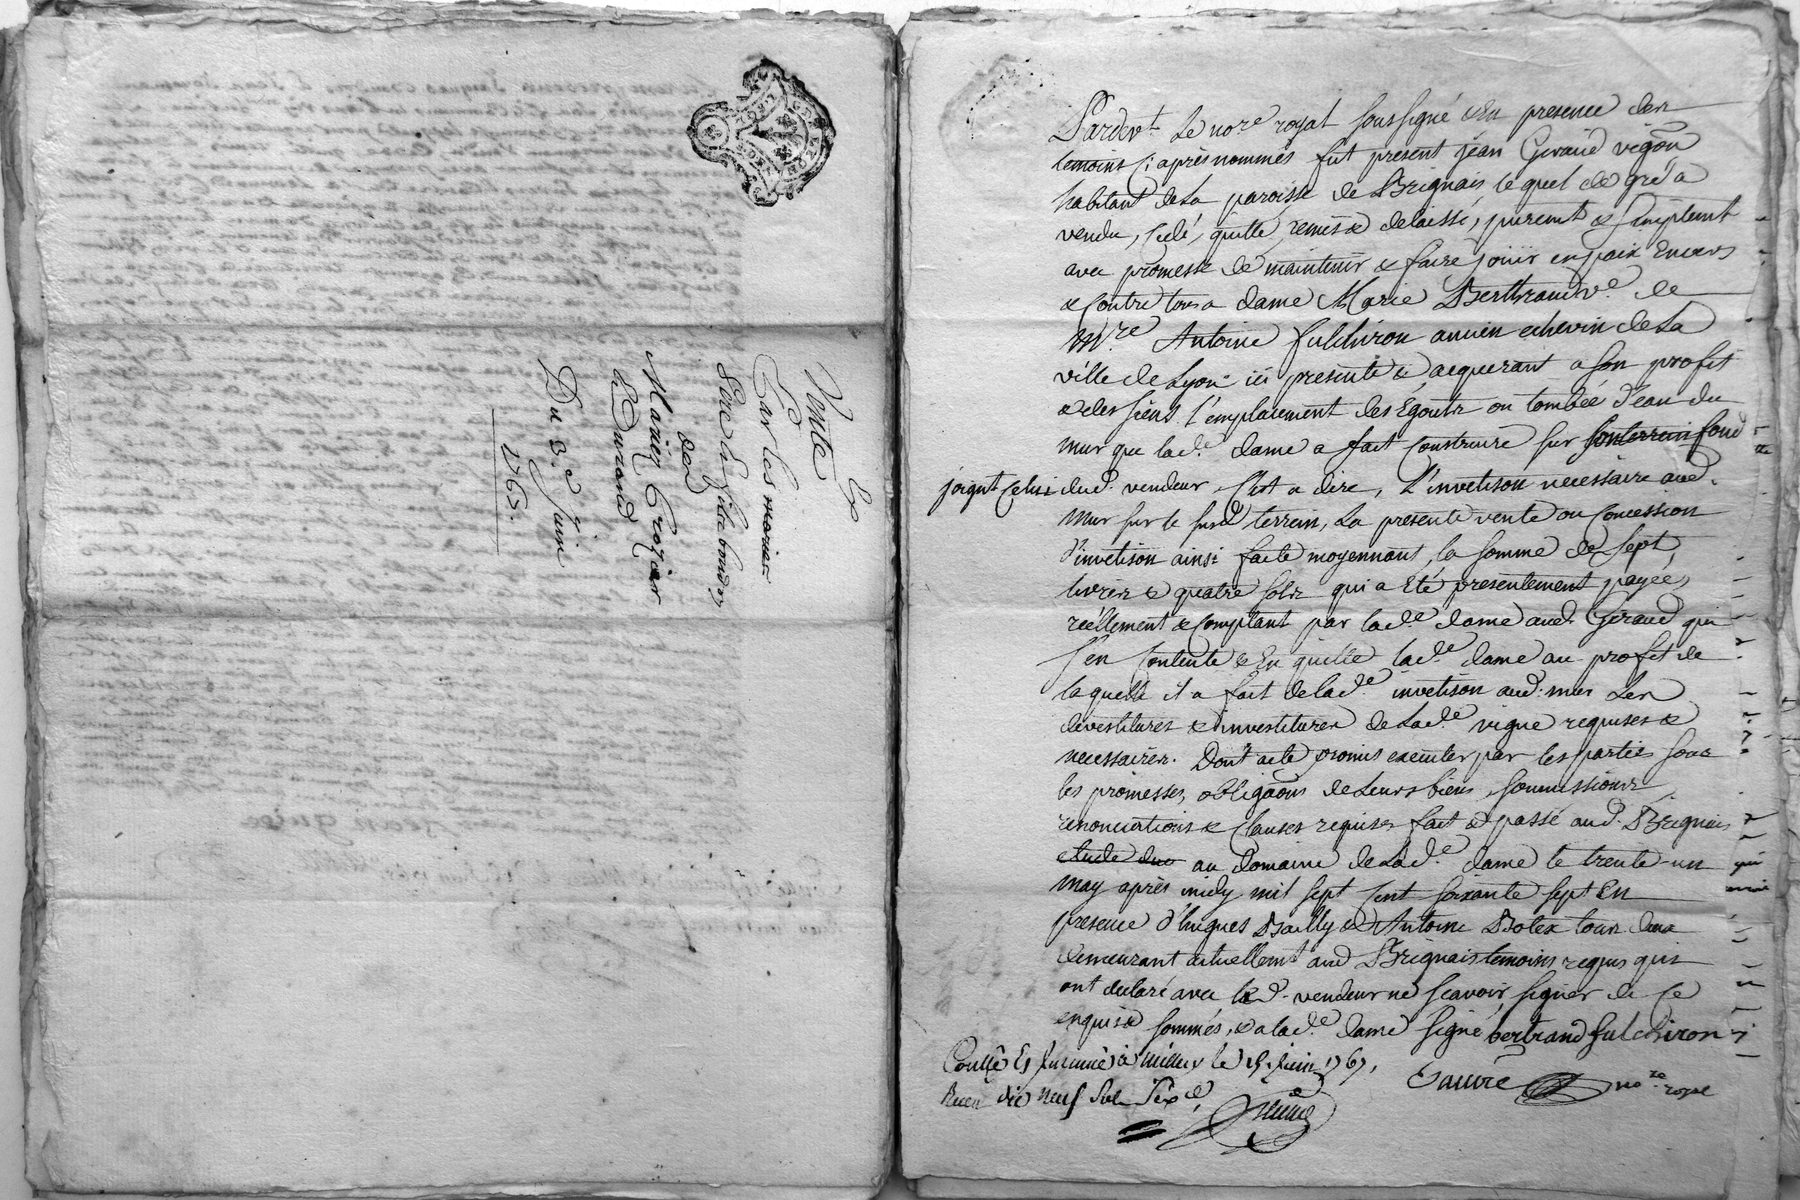 Vente
Par les mariés
Père & filz bonnez
des
Mariez Crozier
& Durand
Du 3.e Juin
1767.
Pardevt. Le nore royal soussigné & En presence des
temoins ci après nommés fut present jean Giraud vigõn
habitant de la paroisse de Brignais lequel de gré a
vendu, cedé, quitté, remis & delaissé, puremt & simplemt
avec promesse de maintenir & faire joüir en paix Envers
& Contre tous a dame Marie Berthrand ve. de
mre. Antoine fulchiron ancien echevin de La
ville de Lyon ici presente & acquerant a son profit
& des siens L'emplacement des Egoutz ou tombée d'eau du
mur que lade. dame a fait Construire sur son terrein fond
joignt Celui dud. vendeur C'est a dire, L'invetison necessaire aud.
mur sur le susd terrein, La presente vente ou Concession
d'invetison ainsi faite moyennant la somme de Sept
livres & quatre solz qui a Eté presentement payée,
réellement & Comptant par lade. dame aud. Giraud qui
s'en Contente & En quitte lade. dame au profit de
laquelle il a fait de lade. invetison aud. mur Les
devestitures & investitures de Lade. vigne requises &
necessaires. Dont acte promis executer par les parties sous
les promesses, obligãons de Leurs biens, soumissions,
renonciations & clauses requises fait & passé aud. Brignais
etude du au domaine de Lade. dame le trente-un
may après midy mil sept Cent soixante sept En
presence d'hugues Bailly & Antoine Bolex tous deux
demeurant actuellemt aud Brignais temoins requis qui
ont declaré avec led. vendeur ne scavoir signer de Ce
enquis & sommés, & a lade. dame signé bertrand fulchiron
Conllé Es Insinué à millery le 15. juin 1767,
Reçu dix neuf sols six d.
Fauvre nore royal